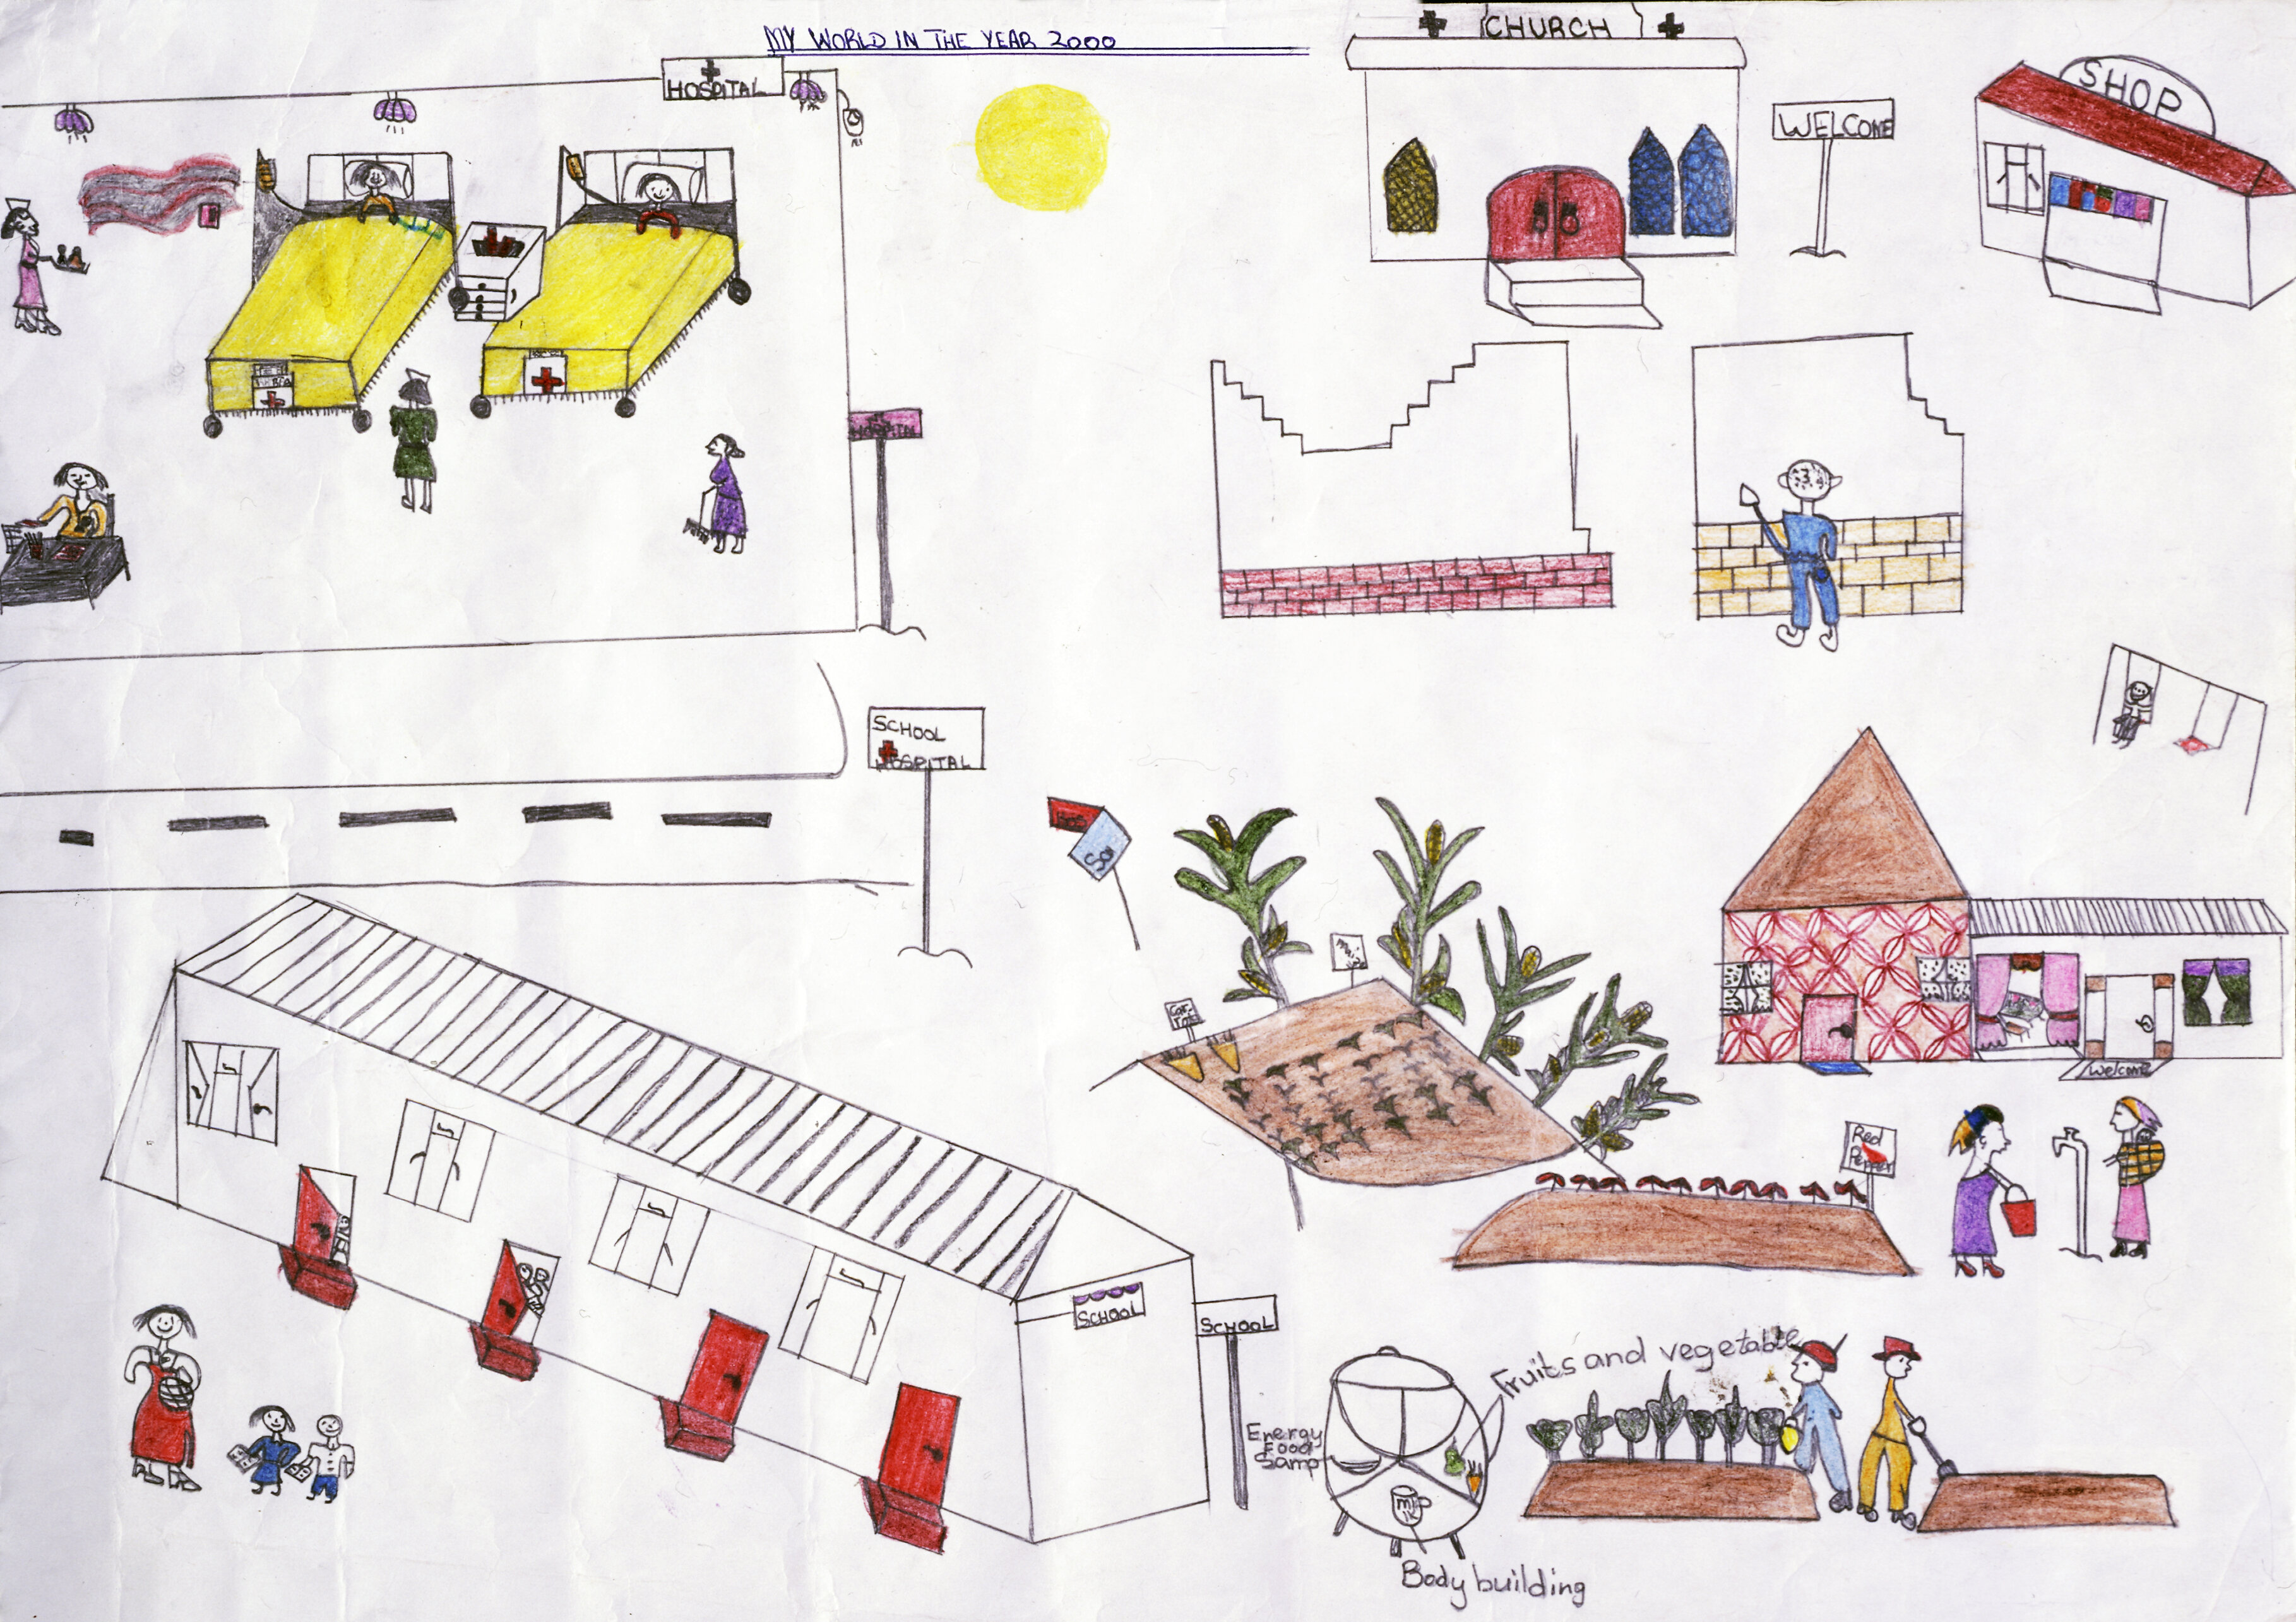 MY WORLD IN THE YEAR 2000
HOSPITAL
CHURCH
WELCOME
SHOP
HOSPITAL
SCHOOL
HOSPITAL
Welcome
Red
Pepper
SCHOOL
SCHOOL
Fruits and vegetable
Energy
Food
Samp
Milk
Body building